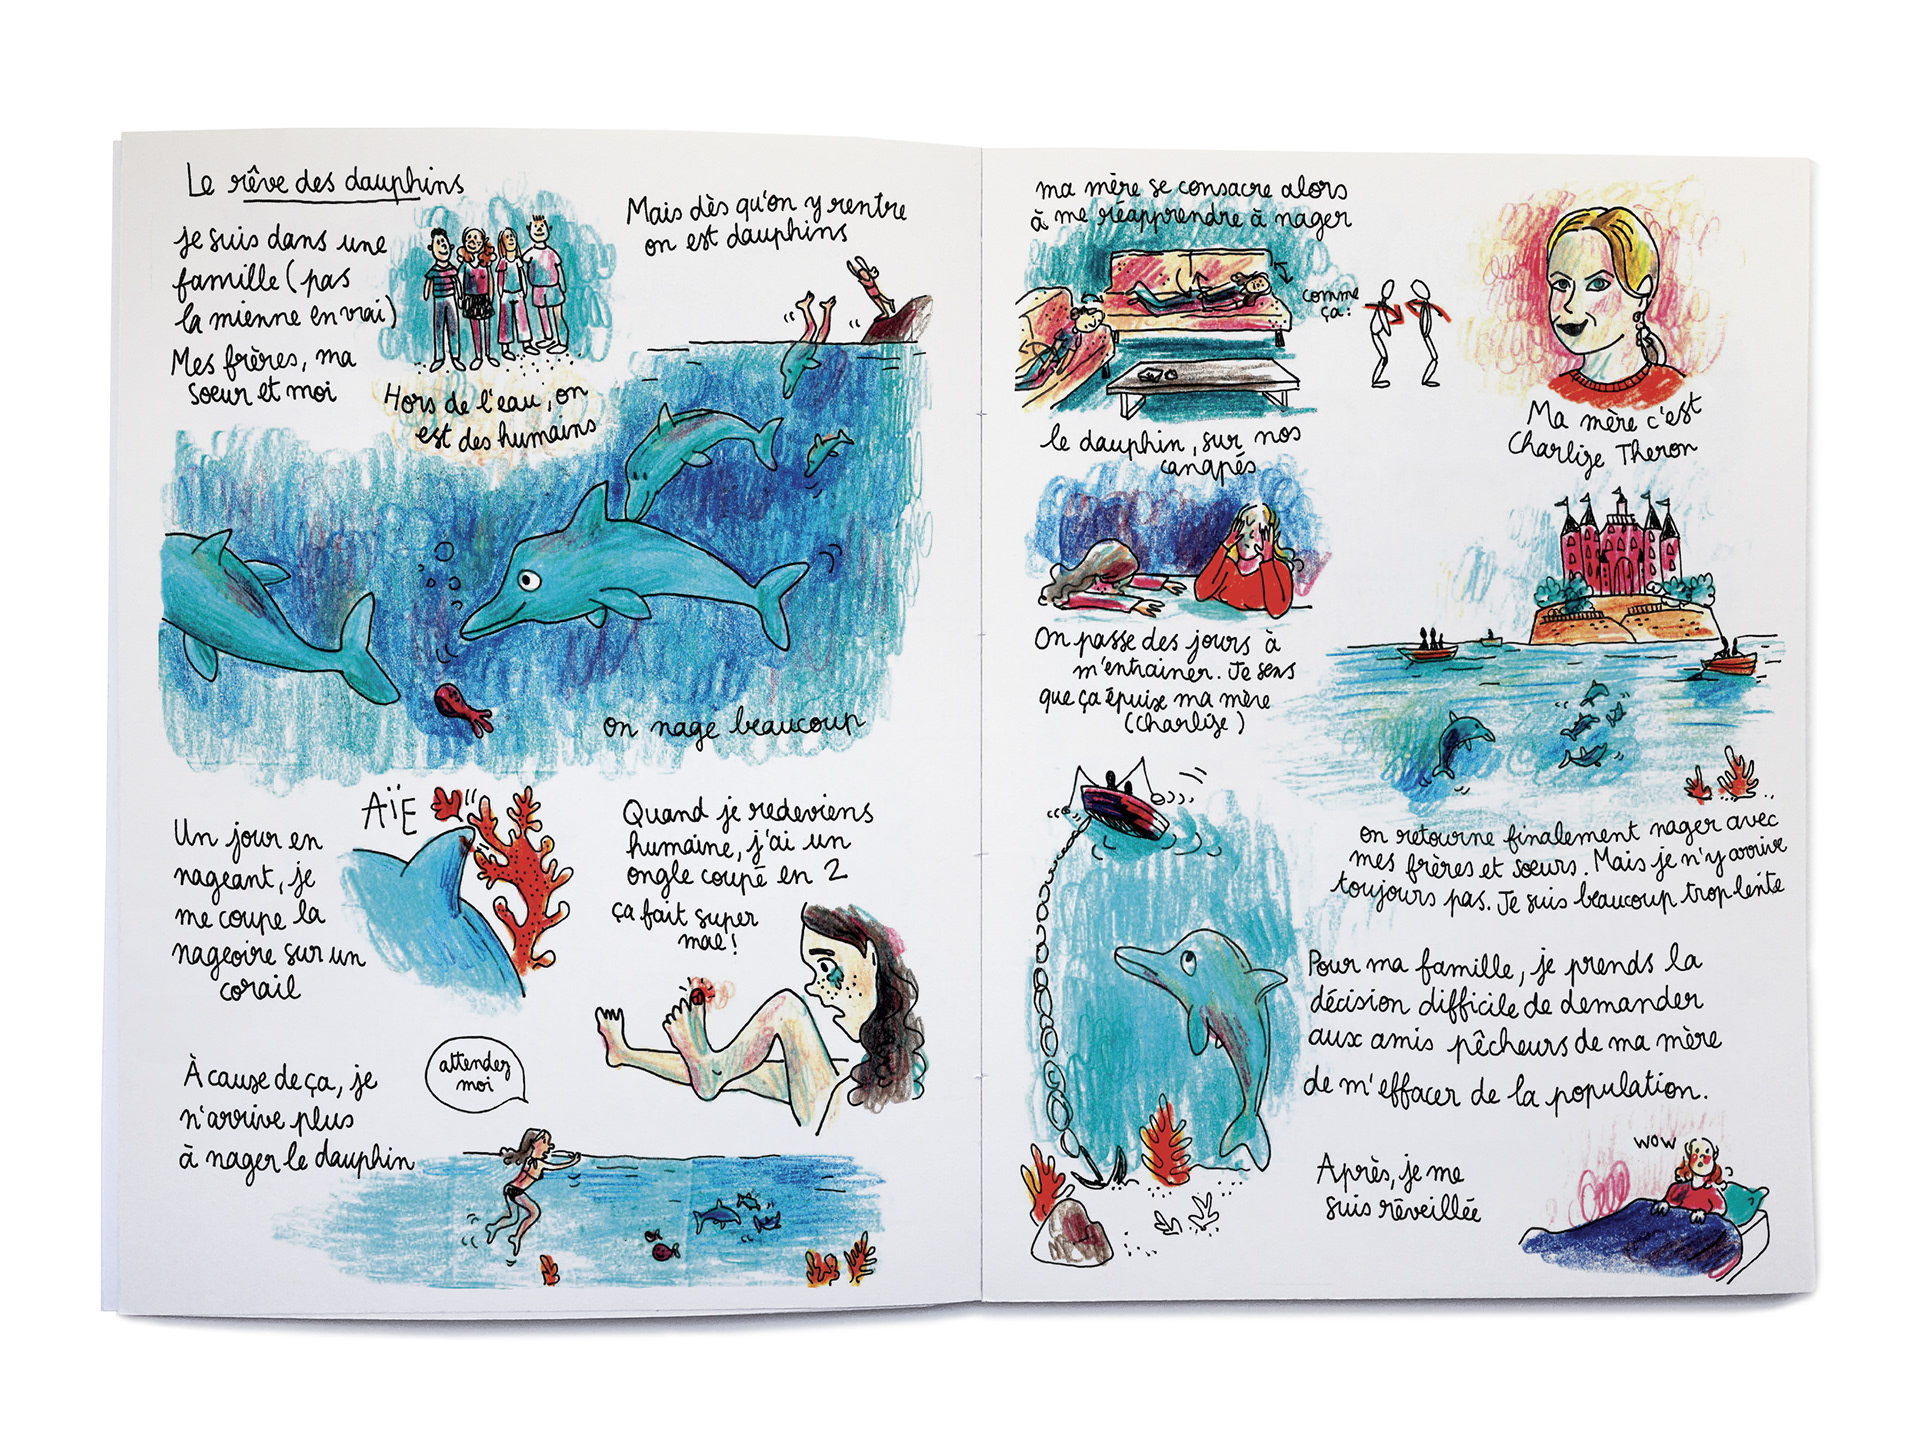 Le rêve des dauphins
je suis dans une
famille (pas
la mienne en vrai)
Mes frères, ma
soeur et moi
Hors de l'eau, on
est des humains
Mais dès qu'on y rentre
on est dauphins
on nage beaucoup
Un jour en
nageant, je
me coupe la
nageoire sur un
corail
AÏE
Quand je redeviens
humaine, j'ai un
ongle coupé en 2
ça fait super
mal!
À cause de ça, je
n'arrive plus
à nager le dauphin
attendez
moi
ma mère se consacre alors
à me réapprendre à nager
comme
ça:
le dauphin, sur nos
canapés
Ma mère c'est
Charlize Theron
On passe des jours à
m'entrainer. Je sens
que ça épuise ma mère
(Charlize)
on retourne finalement nager avec
mes frères et soeurs. Mais je n'y arrive
toujours pas. Je suis beaucoup trop lente
Pour ma famille, je prends la
décision difficile de demander
aux amis pêcheurs de ma mère
de m'effacer de la population.
Après, je me
suis réveillée
wow